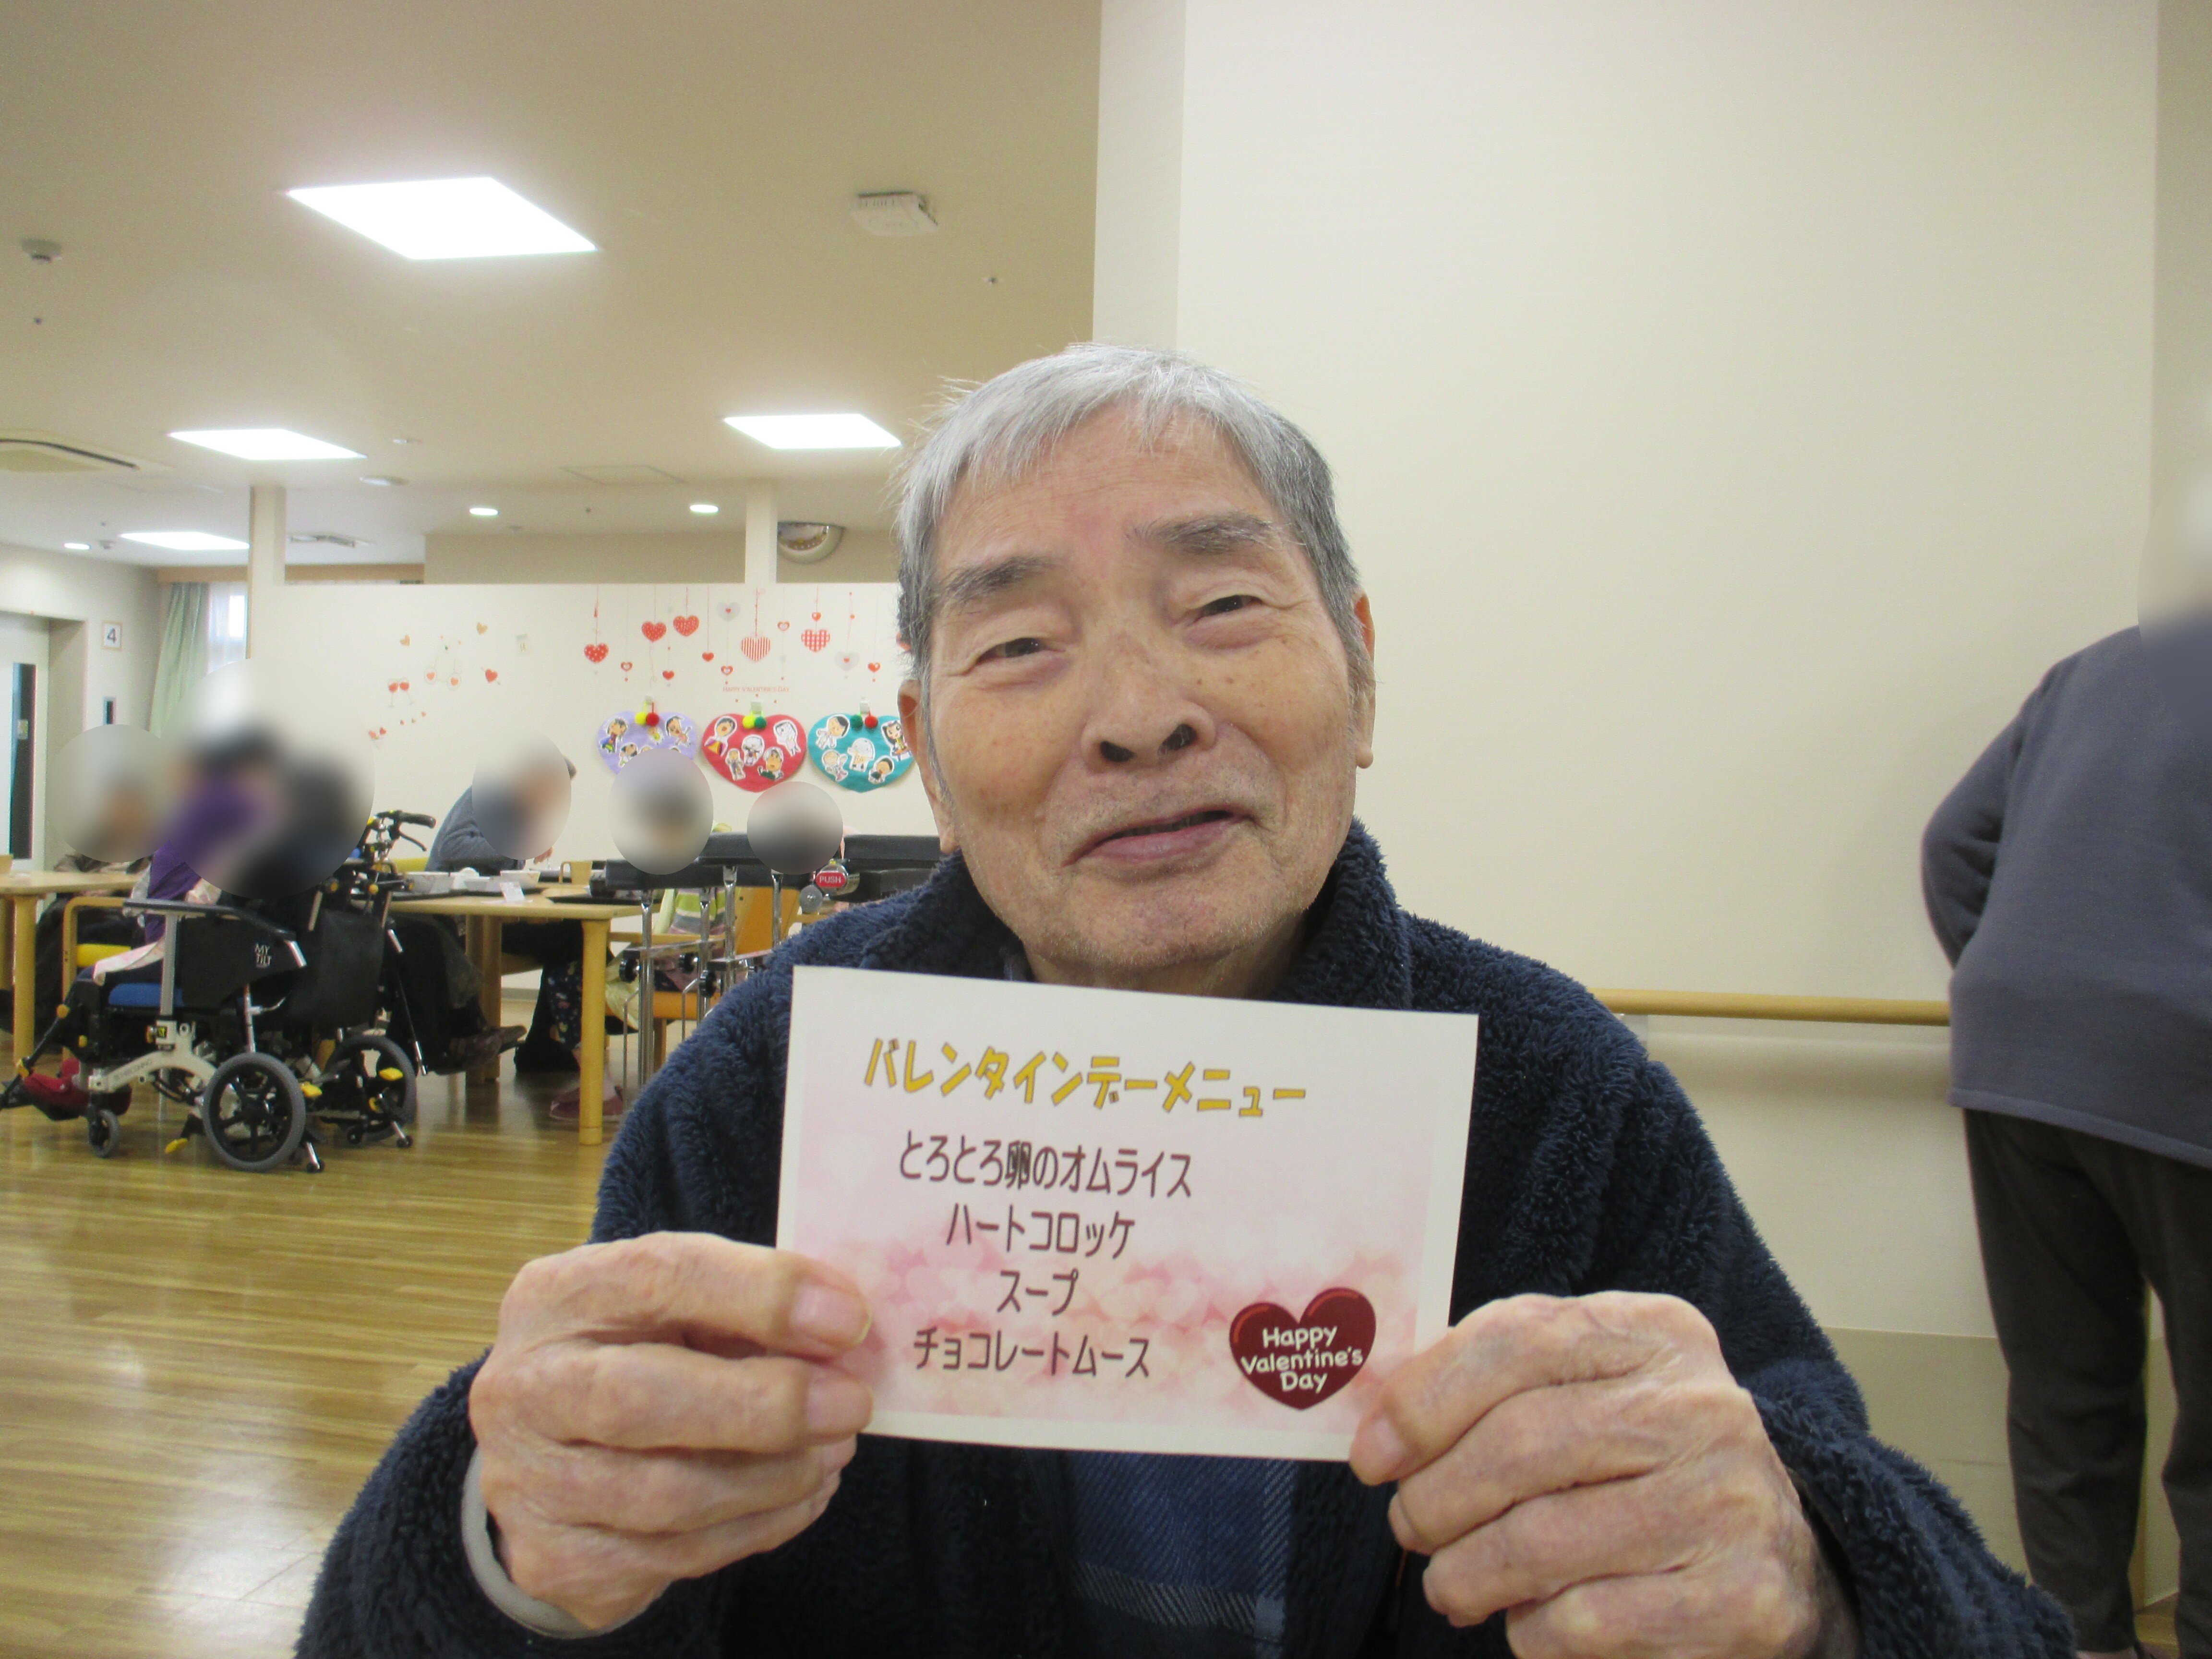 4
HAPPY VALENTINE'S DAY
PUSH
MY
TILT
バレンタインデーメニュー
とろとろ卵のオムライス
ハートコロッケ
スープ
チョコレートムース
Happy
Valentine's
Day